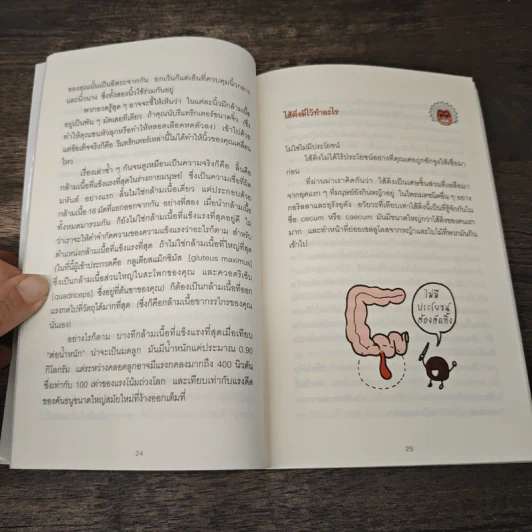 ของคุณนั้นเป็นอิสระจากกัน ยกเว้นก็แต่เอ็นที่ควบคุมนิ้วกลาง
และนิ้วนาง ซึ่งทั้งสองนิ้วใช้ร่วมกันอยู่
พวกอวดรู้สุด ๆ อาจจะชี้ให้เห็นว่า ในแต่ละนิ้วมีกล้ามเนื้อ
อยู่เป็นพัน ๆ มัดเลยทีเดียว ถ้าคุณนับรีแทร็กเตอร์ขนาดจิ๋ว (ซึ่ง
ทำให้คุณขนหัวลุกหรือทำให้หลอดเลือดหดตัวลง) เข้าไปด้วย
แต่ข้อเท็จจริงก็คือ รีแทร็กเตอร์เหล่านี้ไม่ได้ทำให้นิ้วของคุณเคลื่อน
ไหว
เรื่องเล่าซ้ำ ๆ กันจนดูเหมือนเป็นความจริงก็คือ ลิ้นคือ
กล้ามเนื้อที่แข็งแรงที่สุดในร่างกายมนุษย์ ซึ่งเป็นความเชื่อที่ผิด
มหันต์ อย่างแรก ลิ้นไม่ใช่กล้ามเนื้อเดี่ยว แต่ประกอบด้วย
กล้ามเนื้อ 16 มัดที่แยกออกจากกัน อย่างที่สอง เมื่อนำกล้ามเนื้อ
ทั้งหมดมารวมกัน ก็ยังไม่ใช่กล้ามเนื้อที่แข็งแรงที่สุดอยู่ดี ไม่
ว่าเราจะให้คำจำกัดความของความแข็งแรงว่าอะไรก็ตาม สำหรับ
ตำแหน่งกล้ามเนื้อที่แข็งแรงที่สุด ถ้าไม่ใช่กล้ามเนื้อที่ใหญ่ที่สุด
(ในที่นี้ผู้เข้าประกวดคือ กลูเตียสแม็กซิมัส [gluteus maximus]
ซึ่งเป็นกล้ามเนื้อส่วนใหญ่ในสะโพกของคุณ และควอดริเซ็ป
[quadriceps] ซึ่งอยู่ที่ต้นขาของคุณ) ก็ต้องเป็นกล้ามเนื้อที่ออก
แรงกดไปที่วัตถุได้มากที่สุด (ซึ่งก็คือกล้ามเนื้อขากรรไกรของคุณ
นั่นเอง)
อย่างไรก็ตาม บางทีกล้ามเนื้อที่แข็งแรงที่สุดเมื่อเทียบ
"ต่อน้ำหนัก" น่าจะเป็นมดลูก มันมีน้ำหนักแค่ประมาณ 0.90
กิโลกรัม แต่ระหว่างคลอดลูกอาจมีแรงกดลงมากถึง 400 นิวตัน
ซึ่งเท่ากับ 100 เท่าของแรงโน้มถ่วงโลก และเทียบเท่ากับแรงดีด
ของคันธนูขนาดใหญ่สมัยใหม่ที่ง้างออกเต็มที่
24
ไส้ติ่งมีไว้ทำอะไร
ไม่ใช่ไม่มีประโยชน์
ไส้ติ่งไม่ได้ไร้ประโยชน์อย่างที่คุณเคยถูกชักจูงให้เชื่อมา
ก่อน
ที่ผ่านมาเราคิดกันว่า ไส้ติ่งเป็นเศษชิ้นส่วนที่เหลือมา
จากยุคแรก ๆ ที่มนุษย์ยังกินหญ้าอยู่ ในไพรเมตชนิดอื่น ๆ อย่าง
กอริลลาและอุรังอุตัง อวัยวะที่เทียบเท่าไส้ติ่งนี้เป็นที่รู้จักกันใน
ชื่อ cecum หรือ caecum มันมีขนาดใหญ่กว่าไส้ติ่งของคนเรา
มาก และทำหน้าที่ย่อยเซลลูโลสจากหญ้าและใบไม้ที่พวกมันกิน
เข้าไป
ไม่มี
ประโยชน์
ต้องตัดทิ้ง
25